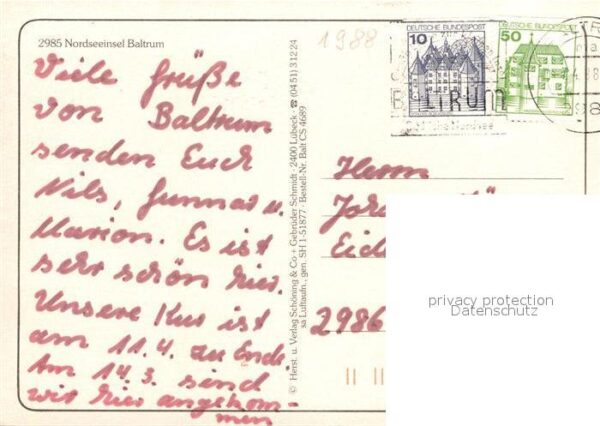 2985 Nordseeinsel Baltrum
1988
Viele Grüße
von Baltrum
senden Euch
Nils, Gunnar u.
Marion. Es ist
sehr schön hier.
Unsere Kur ist
am 11.4. zu Ende
Am 14.3. sind
wir hier angekom-
men
© Herst. u. Verlag Schöning & Co + Gebrüder Schmidt · 2400 Lübeck · ☎ (0451) 31224
sa Luftaufn., gen. SH 1-51877 · Bestell-Nr. Balt CS 4689
DEUTSCHE BUNDESPOST
10
DEUTSCHE BUNDESPOST
50
Herrn
2986
privacy protection
Datenschutz